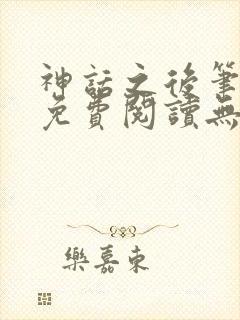 神話之後筆
免費閱讀無
樂嘉東